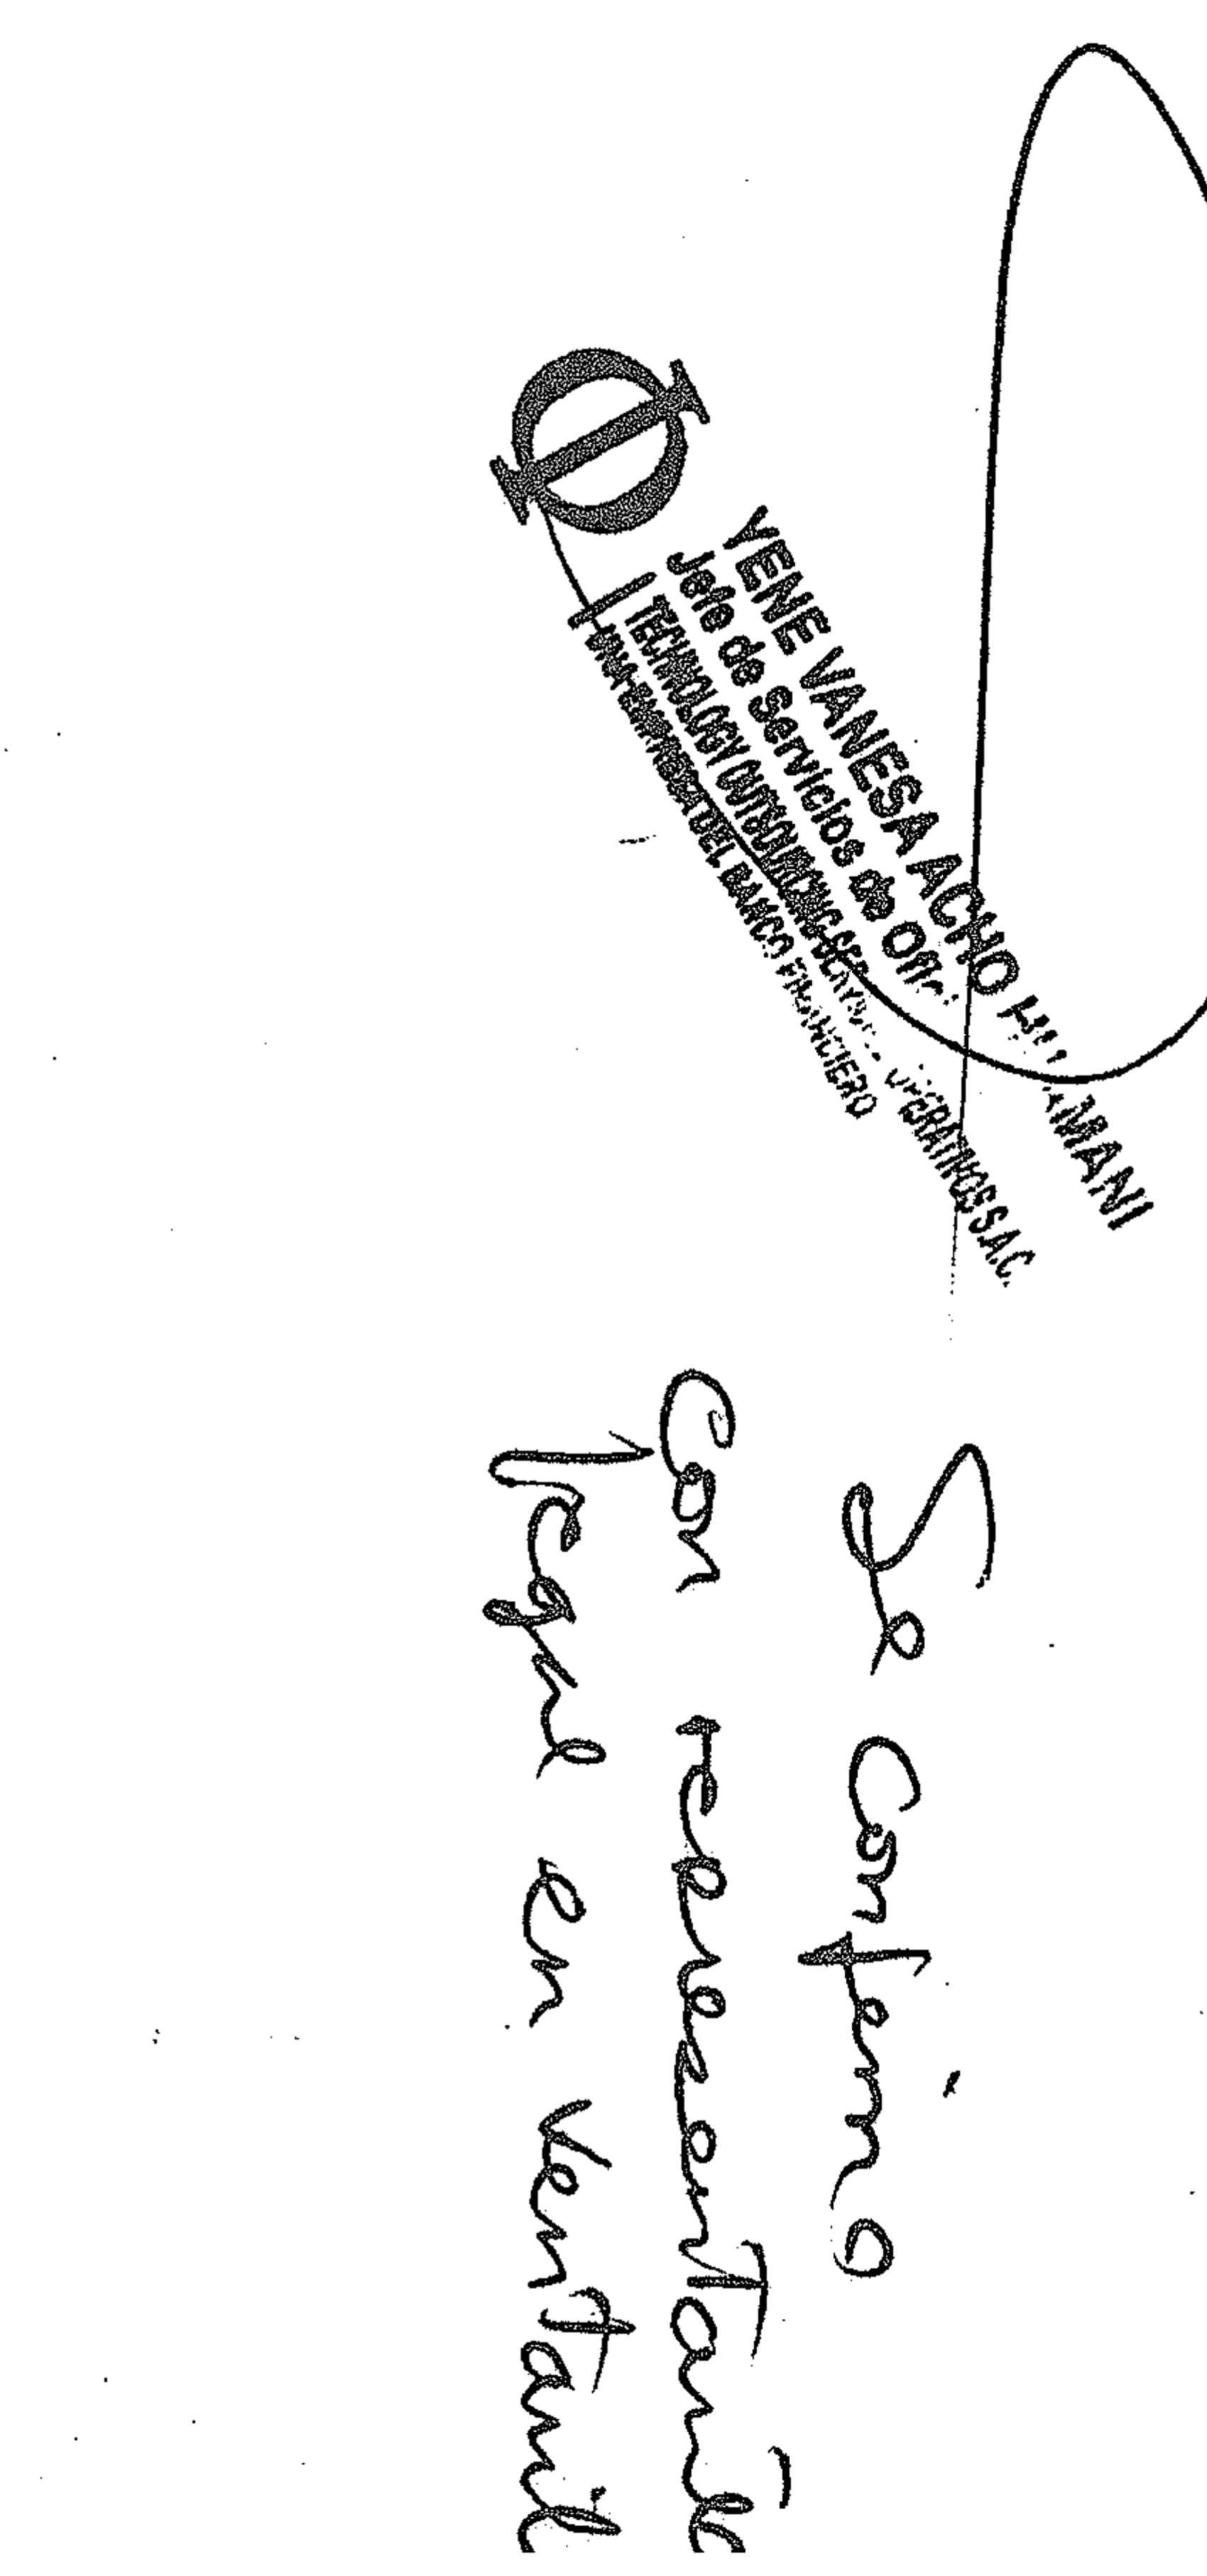 YENE VANESA ACHO HU AMANI
Jefe de Servicios de Ofic
TECHNOLOGY OUTSOURCING SERV OPERATIVOS S.A.C.
UNA EMPRESA DEL BANCO FINANCIERO
Se Confirmo
Con
en Ventanil